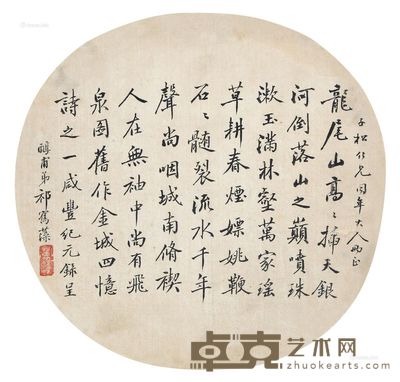 子松仁兄同年大人雨正
龍尾山高〻掃天銀
河倒落山之巔噴珠
漱玉滿林壑萬家瑤
草耕春煙嫖姚鞭
石〻髓裂流水千年
聲尚咽城南脩禊
人在無袖中尚有飛
泉圖舊作金城四憶
詩之一咸豐紀元錄呈
醇甫弟祁寯藻
卓克艺术网
www.zhuokearts.com